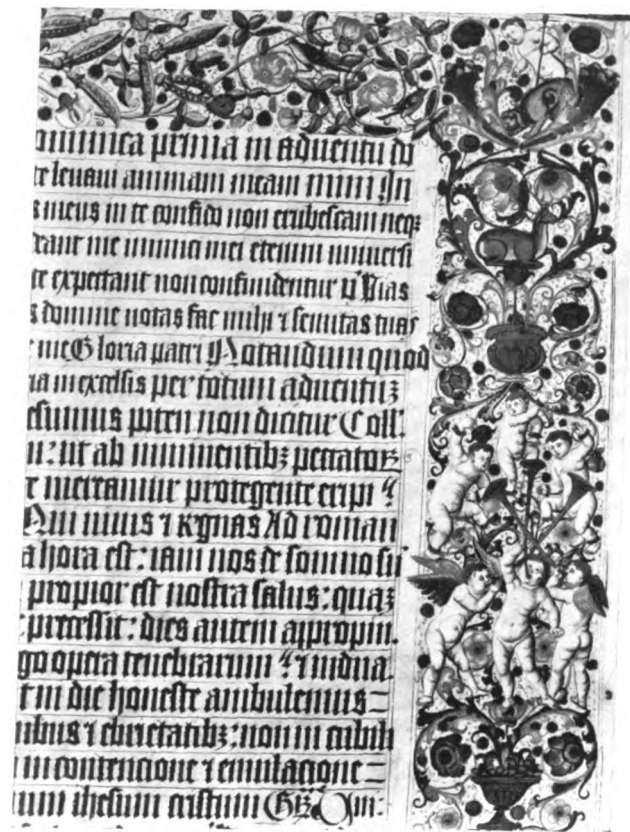 ominica prima in aduentu do
te leuaui animam meam mini In
s meus in te confido non erubescam neqꝫ
deant me inimici mei etenim uniuersi
te expectant non confundentur p̄ Vias
s domine notas fac mihi ⁊ semitas tuas
me Gloria patri Notandum quod
ria in excelsis per totum aduentūꝫ
esumus preter̄ non dicitur Coll̄
ut ab imminentibꝫ peccatorꝫ
t mereamur protegente eripi
Qui uiuis ⁊ regnas Ad roman
a hora est: iam nos de somno su
propior est nostra salus: quaꝫ
precessit: dies autem appropin.
go opera tenebrarum ⁊ indua
t in die honeste ambulemus
nibus ⁊ ebrietatibꝫ: non in cubili
in contencione ⁊ emulacione
num ihesum cristum